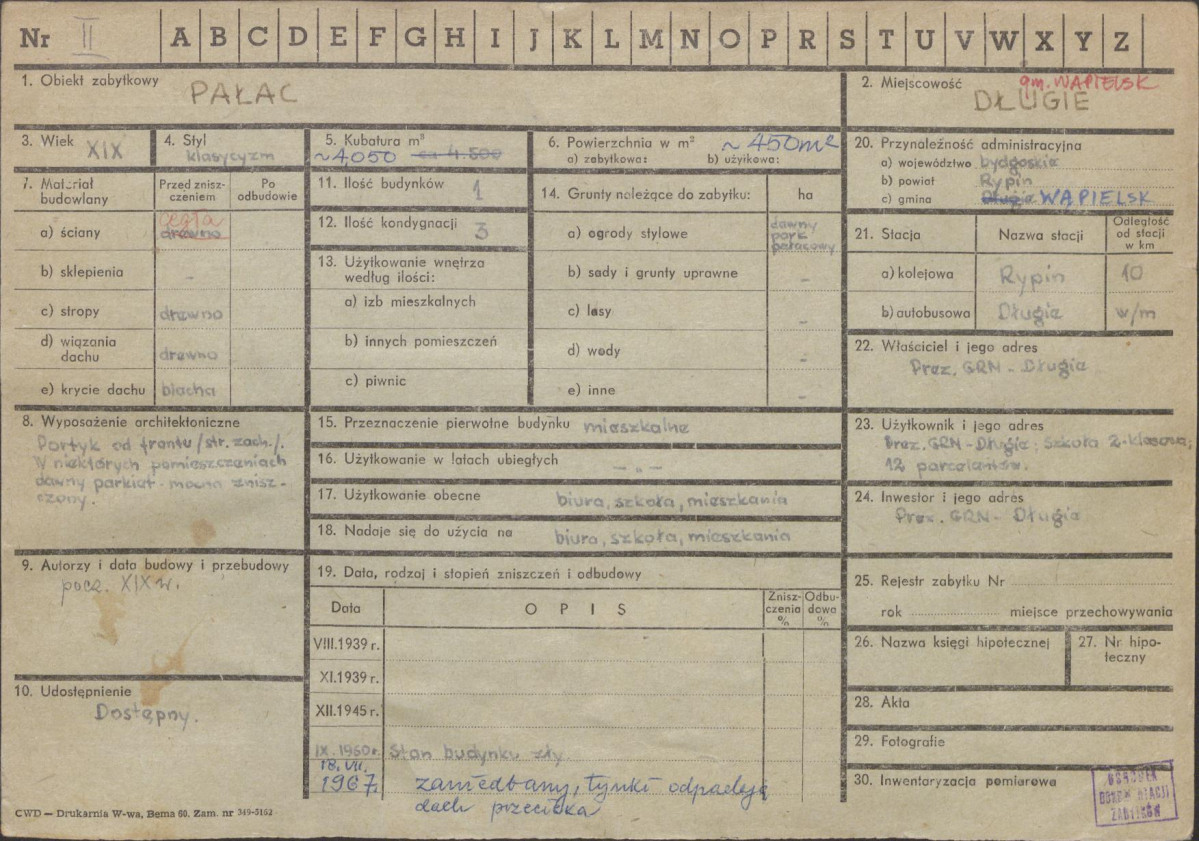 Nr II A B C D E F G H I J K L M N O P R S T U V W X Y Z
1. Obiekt zabytkowy
PAŁAC
2. Miejscowość
gm. WAPIELSK
DŁUGIE
3. Wiek XIX
4. Styl
klasycyzm
5. Kubatura m³
~4.050 ca 4.500
6. Powierzchnia w m² ~450m²
a) zabytkowa: b) użytkowa:
20. Przynależność administracyjna
a) województwo bydgoskie
b) powiat Rypin
c) gmina Długie WĄPIELSK
7. Materiał budowlany
Przed zniszczeniem
Po odbudowie
a) ściany cegła drewno
b) sklepienia -
c) stropy drewno
d) wiązania dachu drewno
e) krycie dachu blacha
11. Ilość budynków 1
12. Ilość kondygnacji 3
13. Użytkowanie wnętrza
według ilości:
a) izb mieszkalnych
b) innych pomieszczeń
c) piwnic
14. Grunty należące do zabytku: ha
a) ogrody stylowe dawny park pałacowy
b) sady i grunty uprawne -
c) lasy -
d) wody -
e) inne -
21. Stacja
Nazwa stacji
Odległość od stacji w km
a) kolejowa Rypin 10
b) autobusowa Długie w/m
22. Właściciel i jego adres
Prez. GRN - Długie
8. Wyposażenie architektoniczne
Portyk od frontu /str. zach./.
W niektórych pomieszczeniach
dawny parkiet - mocno znisz-
czony.
15. Przeznaczenie pierwotne budynku mieszkalne
16. Użytkowanie w latach ubiegłych - „ -
17. Użytkowanie obecne biura, szkoła, mieszkania
18. Nadaje się do użycia na biura, szkoła, mieszkania
23. Użytkownik i jego adres
Prez. GRN - Długie; Szkoła 2-klasowa;
12 parcelantów.
24. Inwestor i jego adres
Prez. GRN - Długie
9. Autorzy i data budowy i przebudowy
pocz. XIX w.
10. Udostępnienie
Dostępny.
19. Data, rodzaj i stopień zniszczeń i odbudowy
Data
OPIS
Zniszczenia %
Odbudowa %
VIII.1939 r.
XI.1939 r.
XII.1945 r.
IX.1960 r. Stan budynku zły.
18.VII.
1967. zaniedbany, tynki odpadają
dach przecieka
25. Rejestr zabytku Nr
rok miejsce przechowywania
26. Nazwa księgi hipotecznej
27. Nr hipo-
teczny
28. Akta
29. Fotografie
30. Inwentaryzacja pomiarowa
OŚRODEK
DOKUMENTACJI
ZABYTKÓW
CWD — Drukarnia W-wa, Bema 60. Zam. nr 349-5162